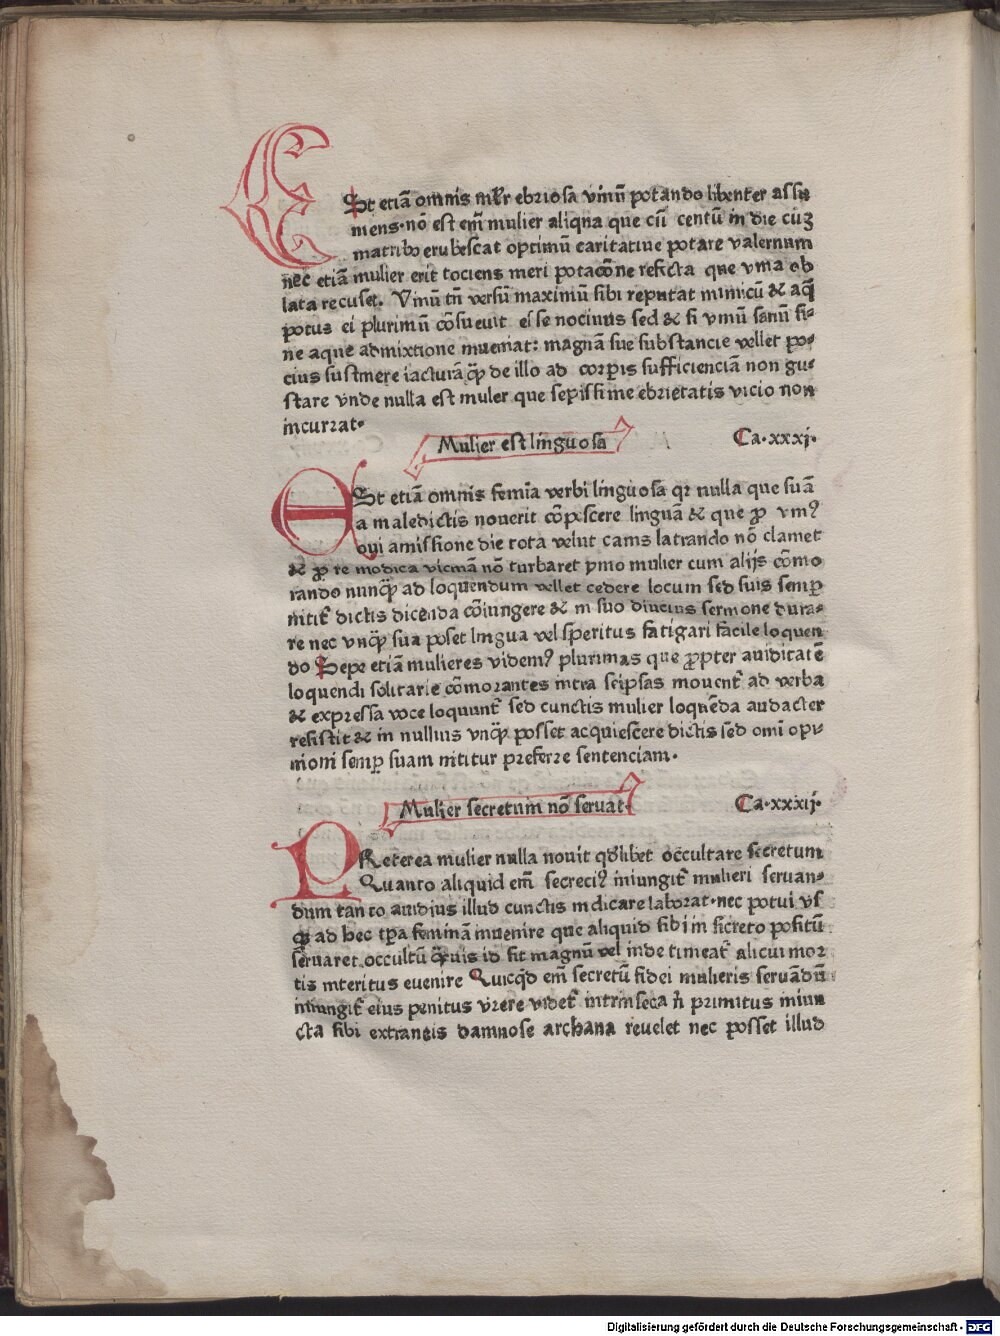 ESt etiā omnis ml̄r ebriosa vinū potando libenter assu
mens·nō est em̄ mulier aliqua que cū centū in die cūʒ
matribꝰ erubescat optimū caritatiue potare valernum
nec etiā mulier erit tociens meri potacōne refecta que vina ob
lata recuset. Vinū tn̄ versū maximū sibi reputat inimicū & aq̄
potus ei plurimū cōsueuit eēse nociuus sed & si vinū sanū si⸗
ne aque admixtione inueniat: magnā sue substancie vellet po⸗
cius sustinere iacturā q̄ꝫ de illo ad corpis sufficienciā non gu⸗
stare vnde nulla est muler que sepissime ebrietatis vicio non
incurrat·
Mulier est linguosa Ca·xxxj·
ESt etiā omnis femia verbi linguosa qr nulla que suā
a maledictis nouerit cōpescere linguā & que ꝓ vniꝰ
oui amissione die tota velut canis latrando nō clamet
& ꝓ re modica viciniā nō turbaret pmo mulier cum alijs cōmo
rando nunq̄ꝫ ad loquendum vellet cedere locum sed suis semp
nitit̄ dictis dicenda cōiungere & in suo diucius sermone dura⸗
re nec vnq̄ꝫ sua poset lingua vel speritus fatigari facile loquen
do Sepe etiā mulieres videmꝰ plurimas que ꝓpter auiditatē
loquendi solitarie cōmorantes intra seipsas mouent̄ ad verba
& expressa voce loquunt̄ sed cunctis mulier loquēda audacter
resistit & in nullius vnq̄ꝫ posset acquiescere dictis sed omi opi⸗
nioni semp suam nititur preferre sentenciam·
Mulier secretum nō seruat· Ca·xxxij·
PReterea mulier nulla nouit qd̄libet occultare secretum
Quanto aliquid em̄ secreciꝰ iniungit̄ mulieri seruan⸗
dum tanto auidius illud cunctis indicare laborat·nec potui vs
q̄ꝫ ad hec tp̄a feminā inuenire que aliquid sibi in secreto positū
seruaret occultū q̄ꝫuis id sit magnū vel inde timeat̄ alicui mor
tis interitus euenire Quicq̄d em̄ secretū fidei mulieris seruādū
iniungit̄ eius penitus vrere videt̄ intrinseca n̄ primitus iniun
cta sibi extraneis damnose archana reuelet nec posset illud
Digitalisierung gefördert durch die Deutsche Forschungsgemeinschaft - DFG